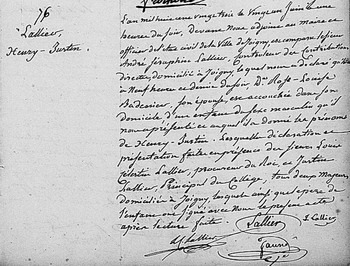 76
Lallier,
Henry-Justin
L'an mil huit cent vingt trois le vingt un Juin
heure du soir, Devant Nous adjoint au maire et
officier de l'état civil de la Ville de Joigny, est comparu le sieur
André Séraphin Lallier, Contrôleur des Contributions
directes, domicilié à Joigny, lequel nous a déclaré
à Neuf heures ce Dame Rose-Louise
Badenier, son épouse, est accouchée dans son
domicile d'un enfant du sexe masculin qu'il
nous a présenté et auquel il a donné les prénoms
de Henry-Justin. Lesquelles déclaration et
présentation faites en présence des sieurs Louis
Lallier, procureur du Roi, et Justin
Lallier, Principal du Collège, tous deux Majeurs,
domiciliés à Joigny, lesquels ainsi que le père de
l'enfant ont signé avec Nous le présent acte
après lecture faite.
Lallier
Lallier
Lallier